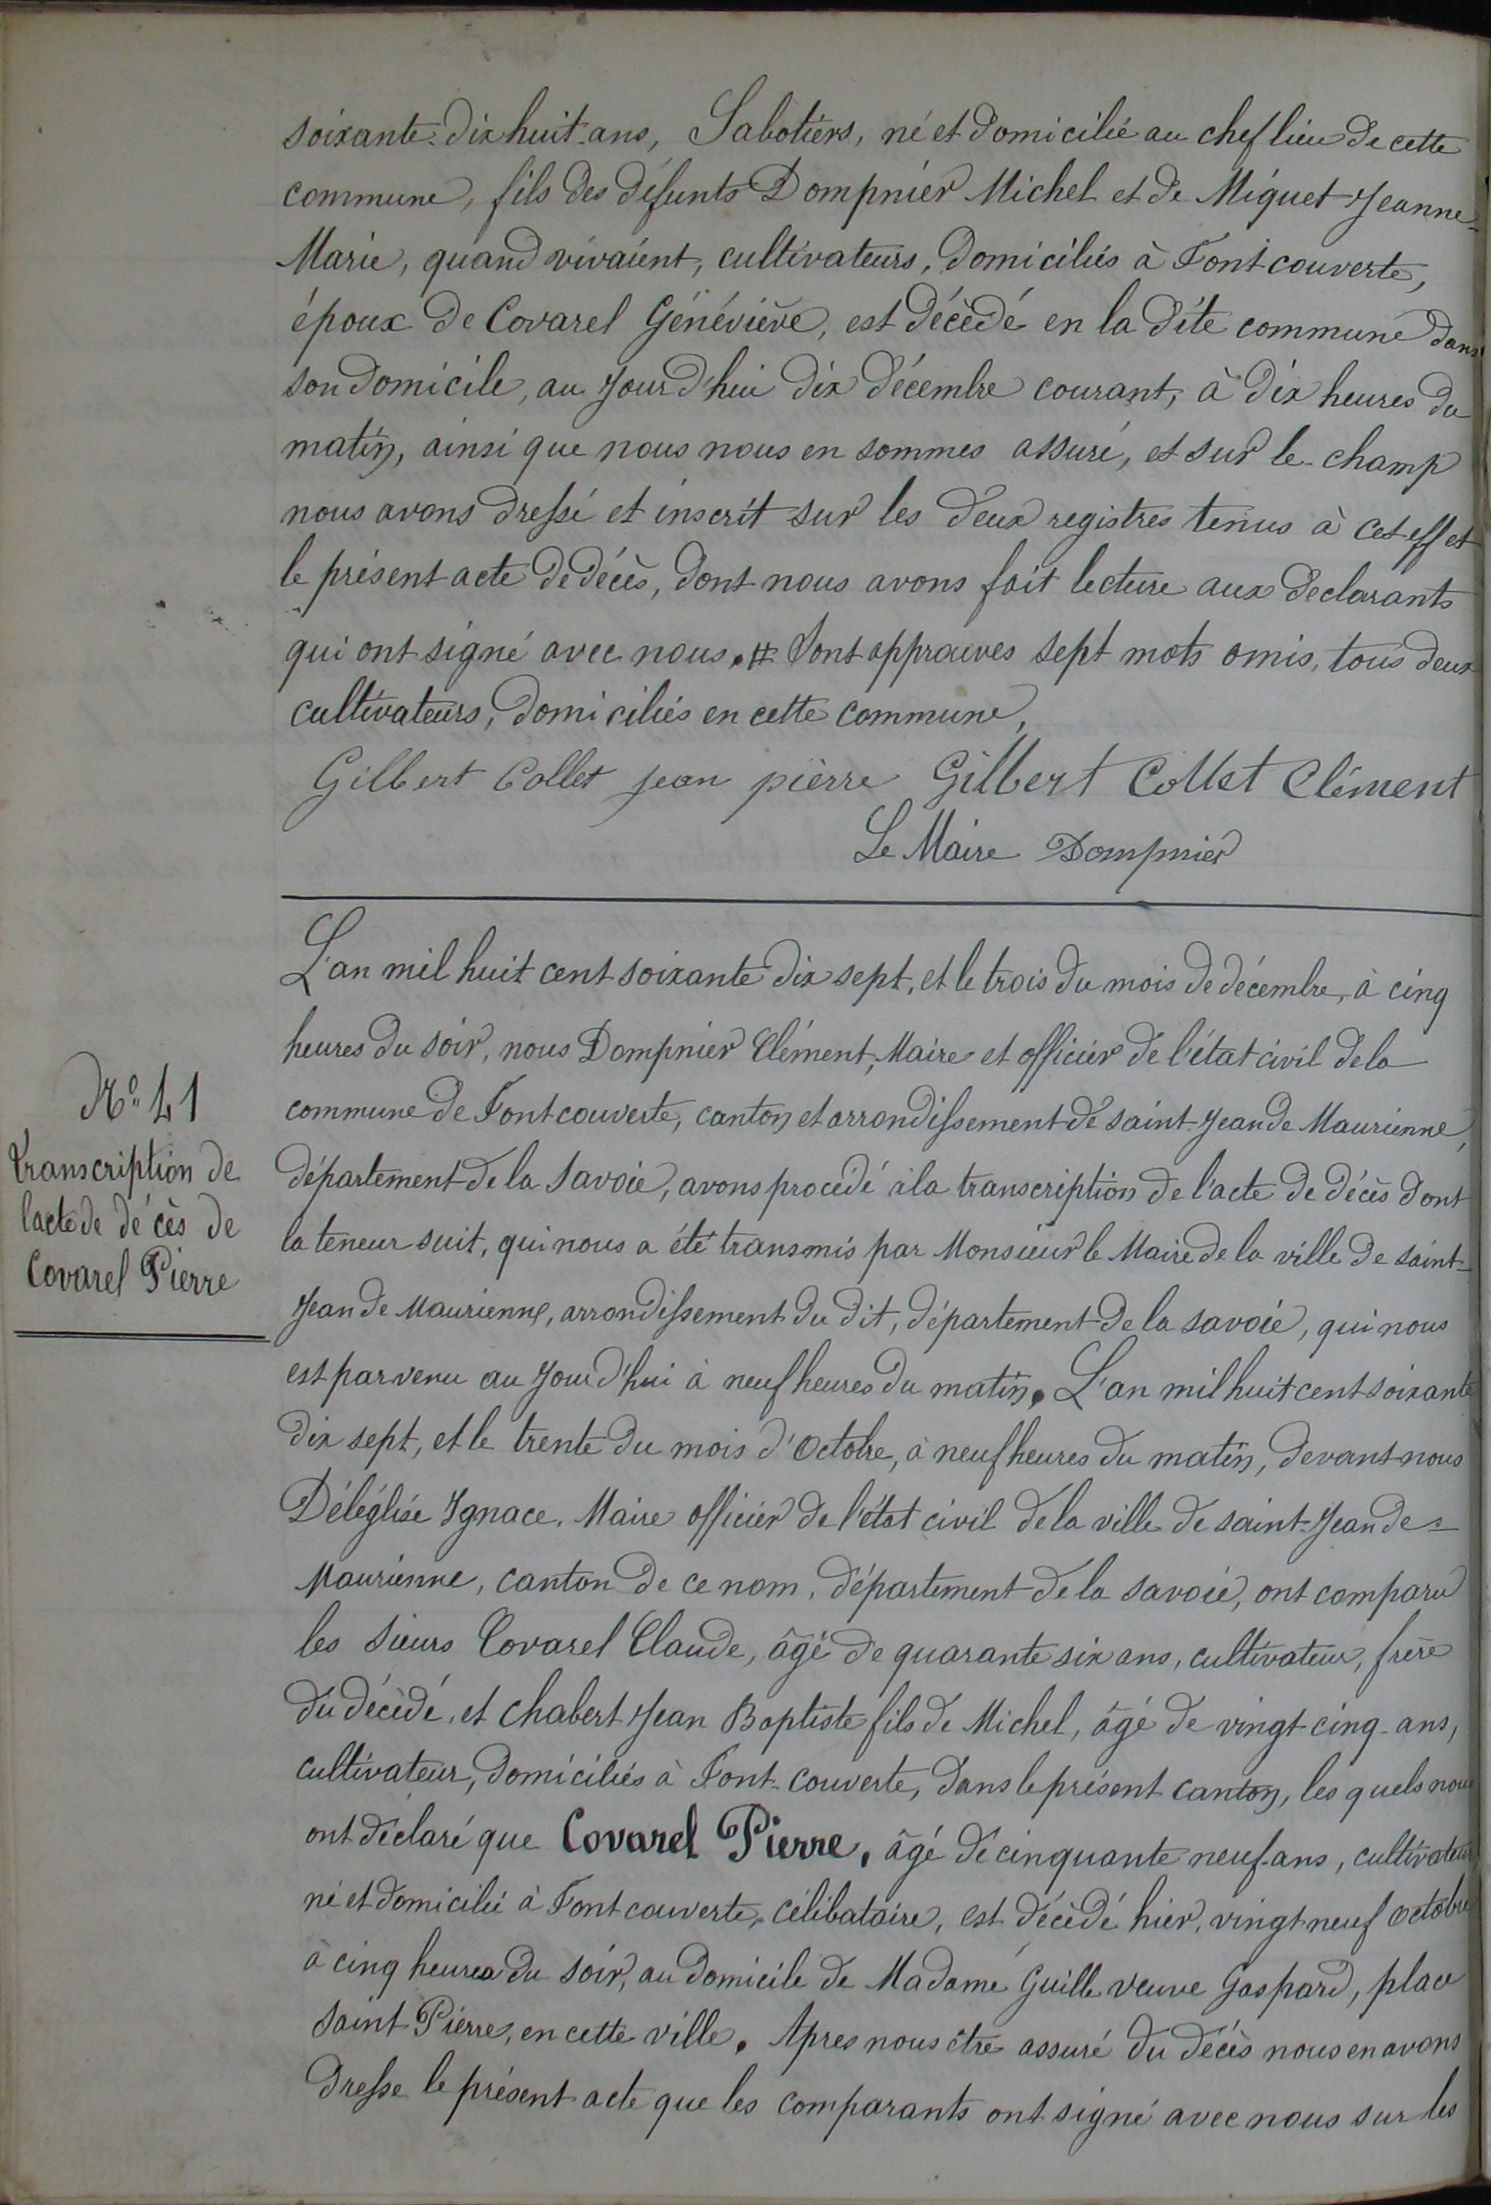 soixante-dix huit ans, Sabotiers, né et domicilié au chef lieu de cette
commune, fils des défunts Dompnier Michel et de Miguet Jeanne-
Marie, quand vivaient, cultivateurs, domiciliés à Fontcouverte,
époux de Covarel Généviève, est décèdé en la dite commune dans
son domicile, au jourd'hui dix décembre courant, à dix heures du
matin, ainsi que nous nous en sommes assuré, et sur le-champ
nous avons dressé et inscrit sur les deux registres tenus à cet effet
le présent acte de décès, dont nous avons fait lecture aux declarants
qui ont signé avec nous. # Sont approuves sept mots omis, tous deux
cultivateurs, domiciliés en cette commune,
Gilbert Collet jean pièrre Gilbert Collet Clément
Le Maire Dompnier
L'an mil huit cent soixante dix sept, et le trois du mois de décembre, à cinq
heures du soir, nous Dompnier Clément, Maire et officier de l'état civil de la
commune de Fontcouverte, canton et arrondissement de saint-Jean de Maurienne,
département de la Savoie, avons procédé à la transcription de l'acte de décès dont
la teneur suit, qui nous a été transmis par Monsieur le Maire de la ville de saint-
Jean de Maurienne, arrondissement du dit, département de la savoie, qui nous
est parvenu au jourd'hui à neuf heures du matin. L'an mil huit cent soixante
dix sept, et le trente du mois d'Octobre, à neuf heures du matin, devant nous
Déléglise Ignace, Maire officier de l'état civil de la ville de saint-Jean de-
Maurienne, canton de ce nom, département de la savoie, ont comparu
les sieurs Covarel Claude, âgé de quarante six ans, cultivateur, frère
du décèdé, et Chabert Jean Baptiste fils de Michel, âgé de vingt cinq-ans,
cultivateur, domiciliés à Font-couverte, dans le présent canton, les quels nous
ont déclaré que Covarel Pierre, âgé de cinquante neuf-ans, cultivateur
né et domicilié à Fontcouverte, célibataire, est décèdé hier, vingt neuf octobre
à cinq heures du soir, au domicile de Madame Guille veuve Gaspard, place
saint Pierre, en cette ville. Apres nous être assuré du décès nous en avons
dresse le présent acte que les comparants ont signé avec nous sur les
No 41
transcription de
lacte de décès de
Covarel Pierre